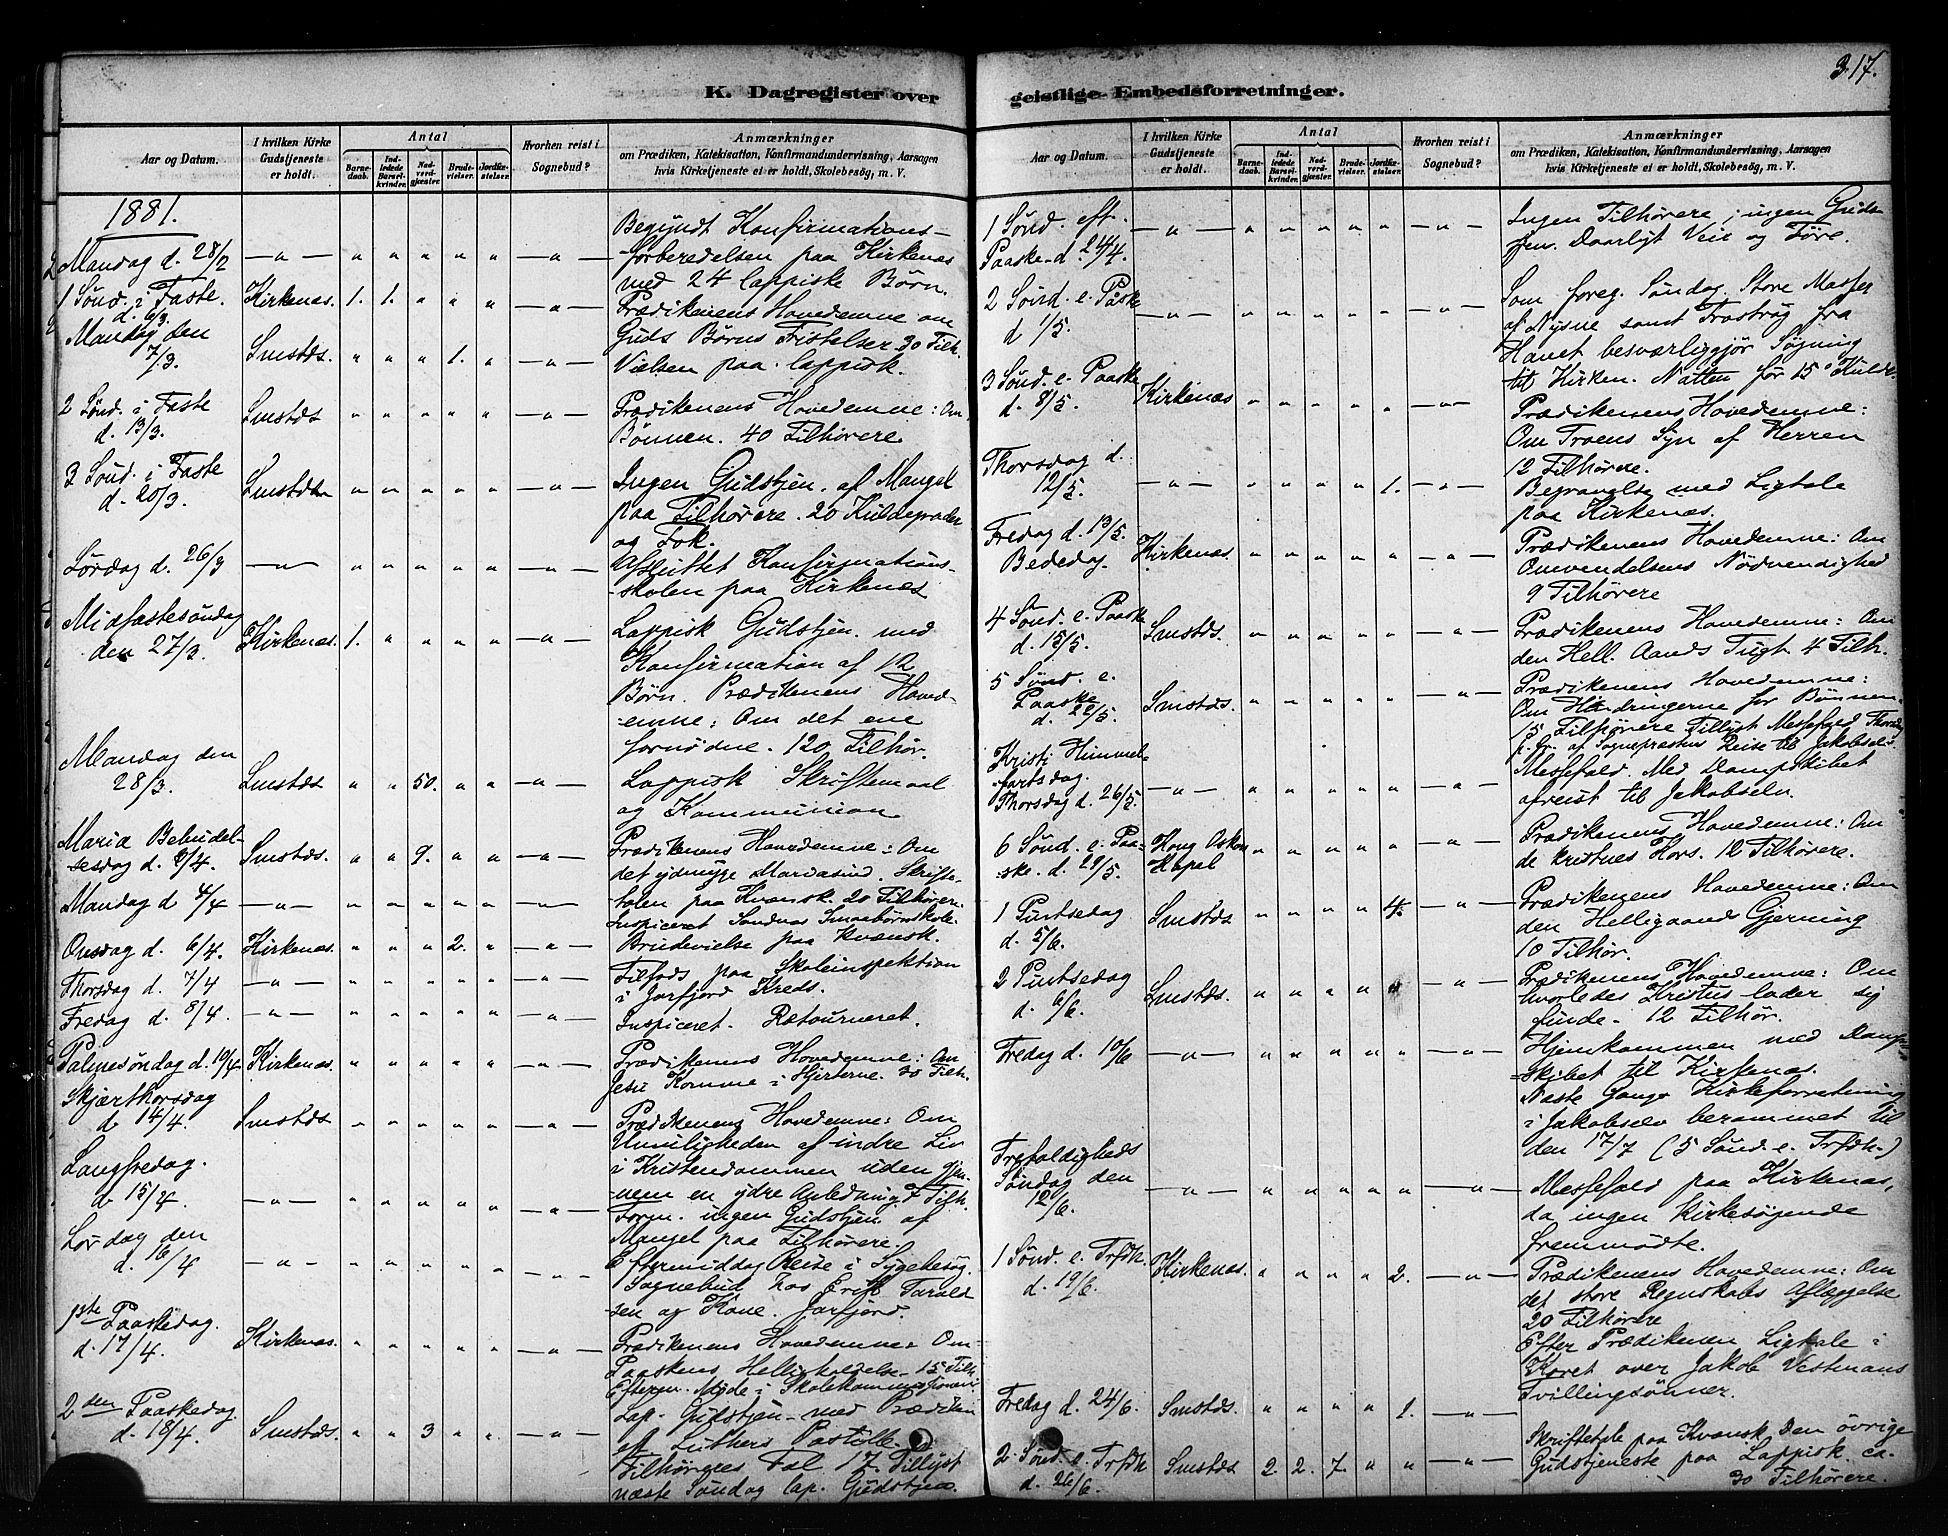 317.
K. Dagregister over geistlige Embedsforretninger.
Aar og Datum.
I hvilken Kirke Gudstjeneste er holdt.
Antal
Barnedaab.
Indledede Barselkvinder.
Nadverdgjæster.
Brudevielser.
Jordfæstelser.
Hvorhen reist i Sognebud?
Anmærkninger
om Prædiken, Katekisation, Konfirmandundervisning, Aarsagen
hvis Kirketjeneste ei er holdt, Skolebesøg, m. V.
1881.
Mandag d. 28/2 — " — " " " " " — " — Begyndt Konfirmations-
forberedelsen paa Kirkenæs
med 24 lappiske Børn.
1 Sönd. i Faste. d. 6/3 Kirkenæs. 1. 1. " " " — " — Prædikenens Hovedemne om
Guds Börns Fristelser 30 Tilh.
Mandag den 7/3. Smstds. " " " 1. " — " — Vielsen paa lappisk.
2 Sönd. i Faste d. 13/3. Smstds " " " " " — " — Prædikenens Hovedemne: Om
Bönnen. 40 Tilhörere.
3 Sönd. i Faste d. 20/3. Smstds " " " " " — " — Ingen Gudstjen. af Mangel
paa Tilhörere. 20 Kuldegrader
og Fok.
Lördag d. 26/3 — " — " " " " " — " — Afsluttet Konfirmations-
skolen paa Kirkenæs
Midfastesöndag den 27/3. Kirkenæs. 1. " " " " — " — Lappisk Gudstjen. med
Konfirmation af 12
Börn. Prædikenens Hoved-
emne: Om det ene
fornödne. 120 Tilhör.
Mandag den 28/3. Smstds " " 50. " " — " — Lappisk Skriftemaal
og Kommunion
Maria Bebudelsesdag d. 2/4. Smstds. " " 9. " " — " — Prædikenens Hovedemne: Om
det ydmyge Mariasind. Skrifte-
talen paa Kvænsk. 20 Tilhören.
Mandag d 4/4 — " — " " " " " — " — Inspiceret Sandnæs Smaabörnskole.
Onsdag d. 6/4. Kirkenæs. " " " 2. " — " — Brudevielse paa kvænsk.
Thorsdag d. 7/4 — " — " " " " " — " — Tilfods paa Skoleinspektion
i Jarfjord Kreds.
Fredag d. 8/4. — " — " " " " " — " — Inspiceret. Retourneret.
Palmesöndag d. 10/4 Kirkenæs. " " " " " — " — Prædikenens Hovedemne: Om
Jesu Komme i Hjerterne. 30 Tilh.
Skjærthorsdag d. 14/4. Smstds " " " " " — " — Prædikenens Hovedemne: Om
Umuligheden af indre Liv
i Kristendommen uden gjen-
nem en ydre Anledning. 7 Tilh.
Langfredag. d. 15/4. — " — " " " " " — " — Form. ingen Gudstjen. af
Mangel paa Tilhörere.
Lördag den d. 16/4 — " — " " " " " — " — Eftermiddag Reise i Sygebesög.
Sognebud hos Erik Tarald-
sen og Kone. Jarfjord.
1ste Paaskedag. d. 17/4. Kirkenæs. " " " " " — " — Prædikenens Hovedemne: Om
Paaskens Helligholdelse. 15 Tilh.
Efterm. Möde i Skolekommissionen.
2den Paaskedag. d. 18/4. Smstds. " " 3 " " — " — Lap. Gudstjen. med Prædiken
af Luthers Postille.
Tilhörernes Tal 17. Tillyst
næste Söndag lap. Gudstjen.
1 Sönd. eft. Paaske d. 24/4. — " — " " " " " — " — Ingen Tilhörere; ingen Guds-
tjen. Daarligt Veir og Före.
2 Sönd. e. Paaske d 1/5. — " — " " " " " — " — Som foreg. Söndag. Store Masser
af Nysne samt Froströg fra
Havet besværliggjör Sögning
til Kirken. Natten för 15° Kulde.
3 Sönd. e. Paaske d. 8/5. Kirkenæs " " " " " — " — Prædikenens Hovedemne:
Om Troens Syn af Herren
12 Tilhörere.
Thorsdag d. 12/5. — " — " " " " 1. — " — Begravelse med Ligtale
paa Kirkenæs.
Fredag d. 13/5. Bededag. Kirkenæs. " " " " " — " — Prædikenens Hovedemne: Om
Omvendelsens Nödvendighed
9 Tilhörere
4 Sönd. e. Paaske d. 15/5. Smstds. " " " " " — " — Prædikenens Hovedemne: Om
den Hell. Aands Tugt. 4 Tilh.
5 Sönd. e. Paaske d. 22/5. Smstds. " " " " " — " — Prædikenens Hovedemne:
Om Hindringerne for Bönnen.
15 Tilhörere Tillyst Messefald Thorsdag
p. Gr. af Sognepræstens Reise til Jakobselv.
Kristi Himmelfartsdag. Thorsdag d. 26/5. — " — " " " " " — " — Messefald. Med Dampskibet
afreist til Jakobselv.
6 Sönd. e. Paaske. d. 29/5. Kong Oskars Kapel " " " " " — " — Prædikenens Hovedemne: Om
de kristnes Kors. 12 Tilhörere.
1 Pintsedag d. 5/6. Smstds " " " " 4. — " — Prædikenens Hovedemne: Om
den Helligaands Gjerning
10 Tilhör.
2 Pintsedag d. 6/6. Smstds. " " " " " — " — Prædikenens Hovedemne: Om
hvorledes Kristus lader sig
finde. 12 Tilhör.
Fredag d. 10/6 — " — " " " " " — " — Hjemkommen med Damp-
skibet til Kirkenæs.
Næste Gangs Kirkeforretning
i Jakobselv berammet til
den 17/7 (5 Sönd. e. Trfdh.)
Trefoldigheds Söndag den 12/6. — " — " " " " " — " — Messefald paa Kirkenæs,
da ingen Kirkesögende
fremmödte.
1 Sönd. e. Trfdh. d. 19/6. Kirkenæs. " " " " 2. — " — Prædikenens Hovedemne: Om
det store Regnskabs Aflæggelse
20 Tilhörere
Efter Prædikenen Ligtale i
Koret over Jakob Vestmans
Tvillingsönner.
Fredag d. 24/6. Smstds. " " " " 1. — " —
2 Sönd. e. Trfdh d. 26/6. Smstds 2 2. 7. " " — " — Skriftetale paa Kvænsk Den övrige
Gudstjeneste paa Lappisk. ca.
30 Tilhörere.